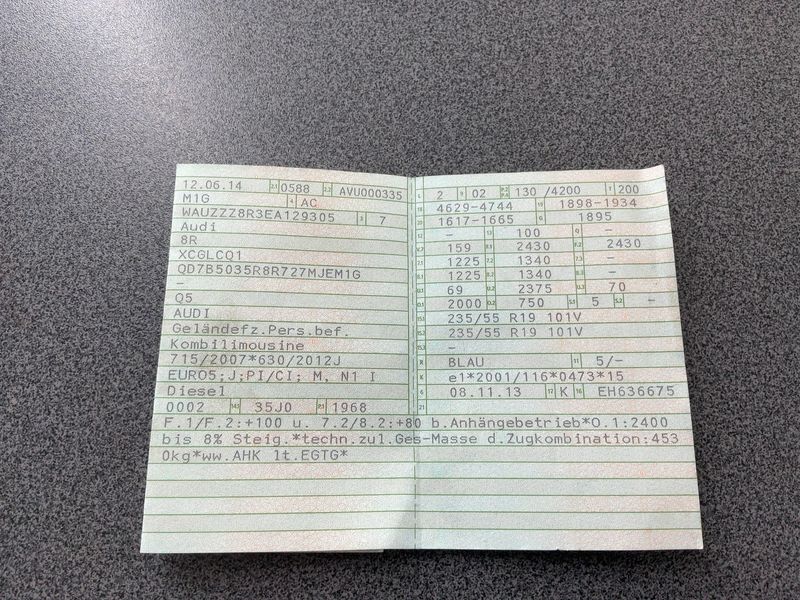 12.06.14 2.1 0588 2.2 AVU000335
M1G 4 AC
WAUZZZ8R3EA129305 3 7
Audi
8R
XCGLCQ1
QD7B5035R8R727MJEM1G
–
Q5
AUDI
Geländefz.Pers.bef.
Kombilimousine
715/2007*630/2012J
EURO5;J;PI/CI; M, N1 I
Diesel
0002 35J0 P.1 1968
L 2 9 02 P.2 P.4 130 /4200 T 200
18 4629-4744 19 1898-1934
20 1617-1665 G 1895
12 – 13 100 Q –
V.7 159 F.1 2430 F.2 2430
7.1 1225 7.2 1340 7.3 –
8.1 1225 8.2 1340 8.3 –
U.1 69 U.2 2375 U.3 70
O.1 2000 O.2 750 S.1 5 S.2 –
15.1 235/55 R19 101V
15.2 235/55 R19 101V
15.3 –
R BLAU 11 5/–
K e1*2001/116*0473*15
6 08.11.13 17 K 16 EH636675
21
F.1/F.2:+100 u. 7.2/8.2:+80 b.Anhängebetrieb*O.1:2400
bis 8% Steig.*techn.zul.Ges-Masse d.Zugkombination:453
0kg*ww.AHK lt.EGTG*